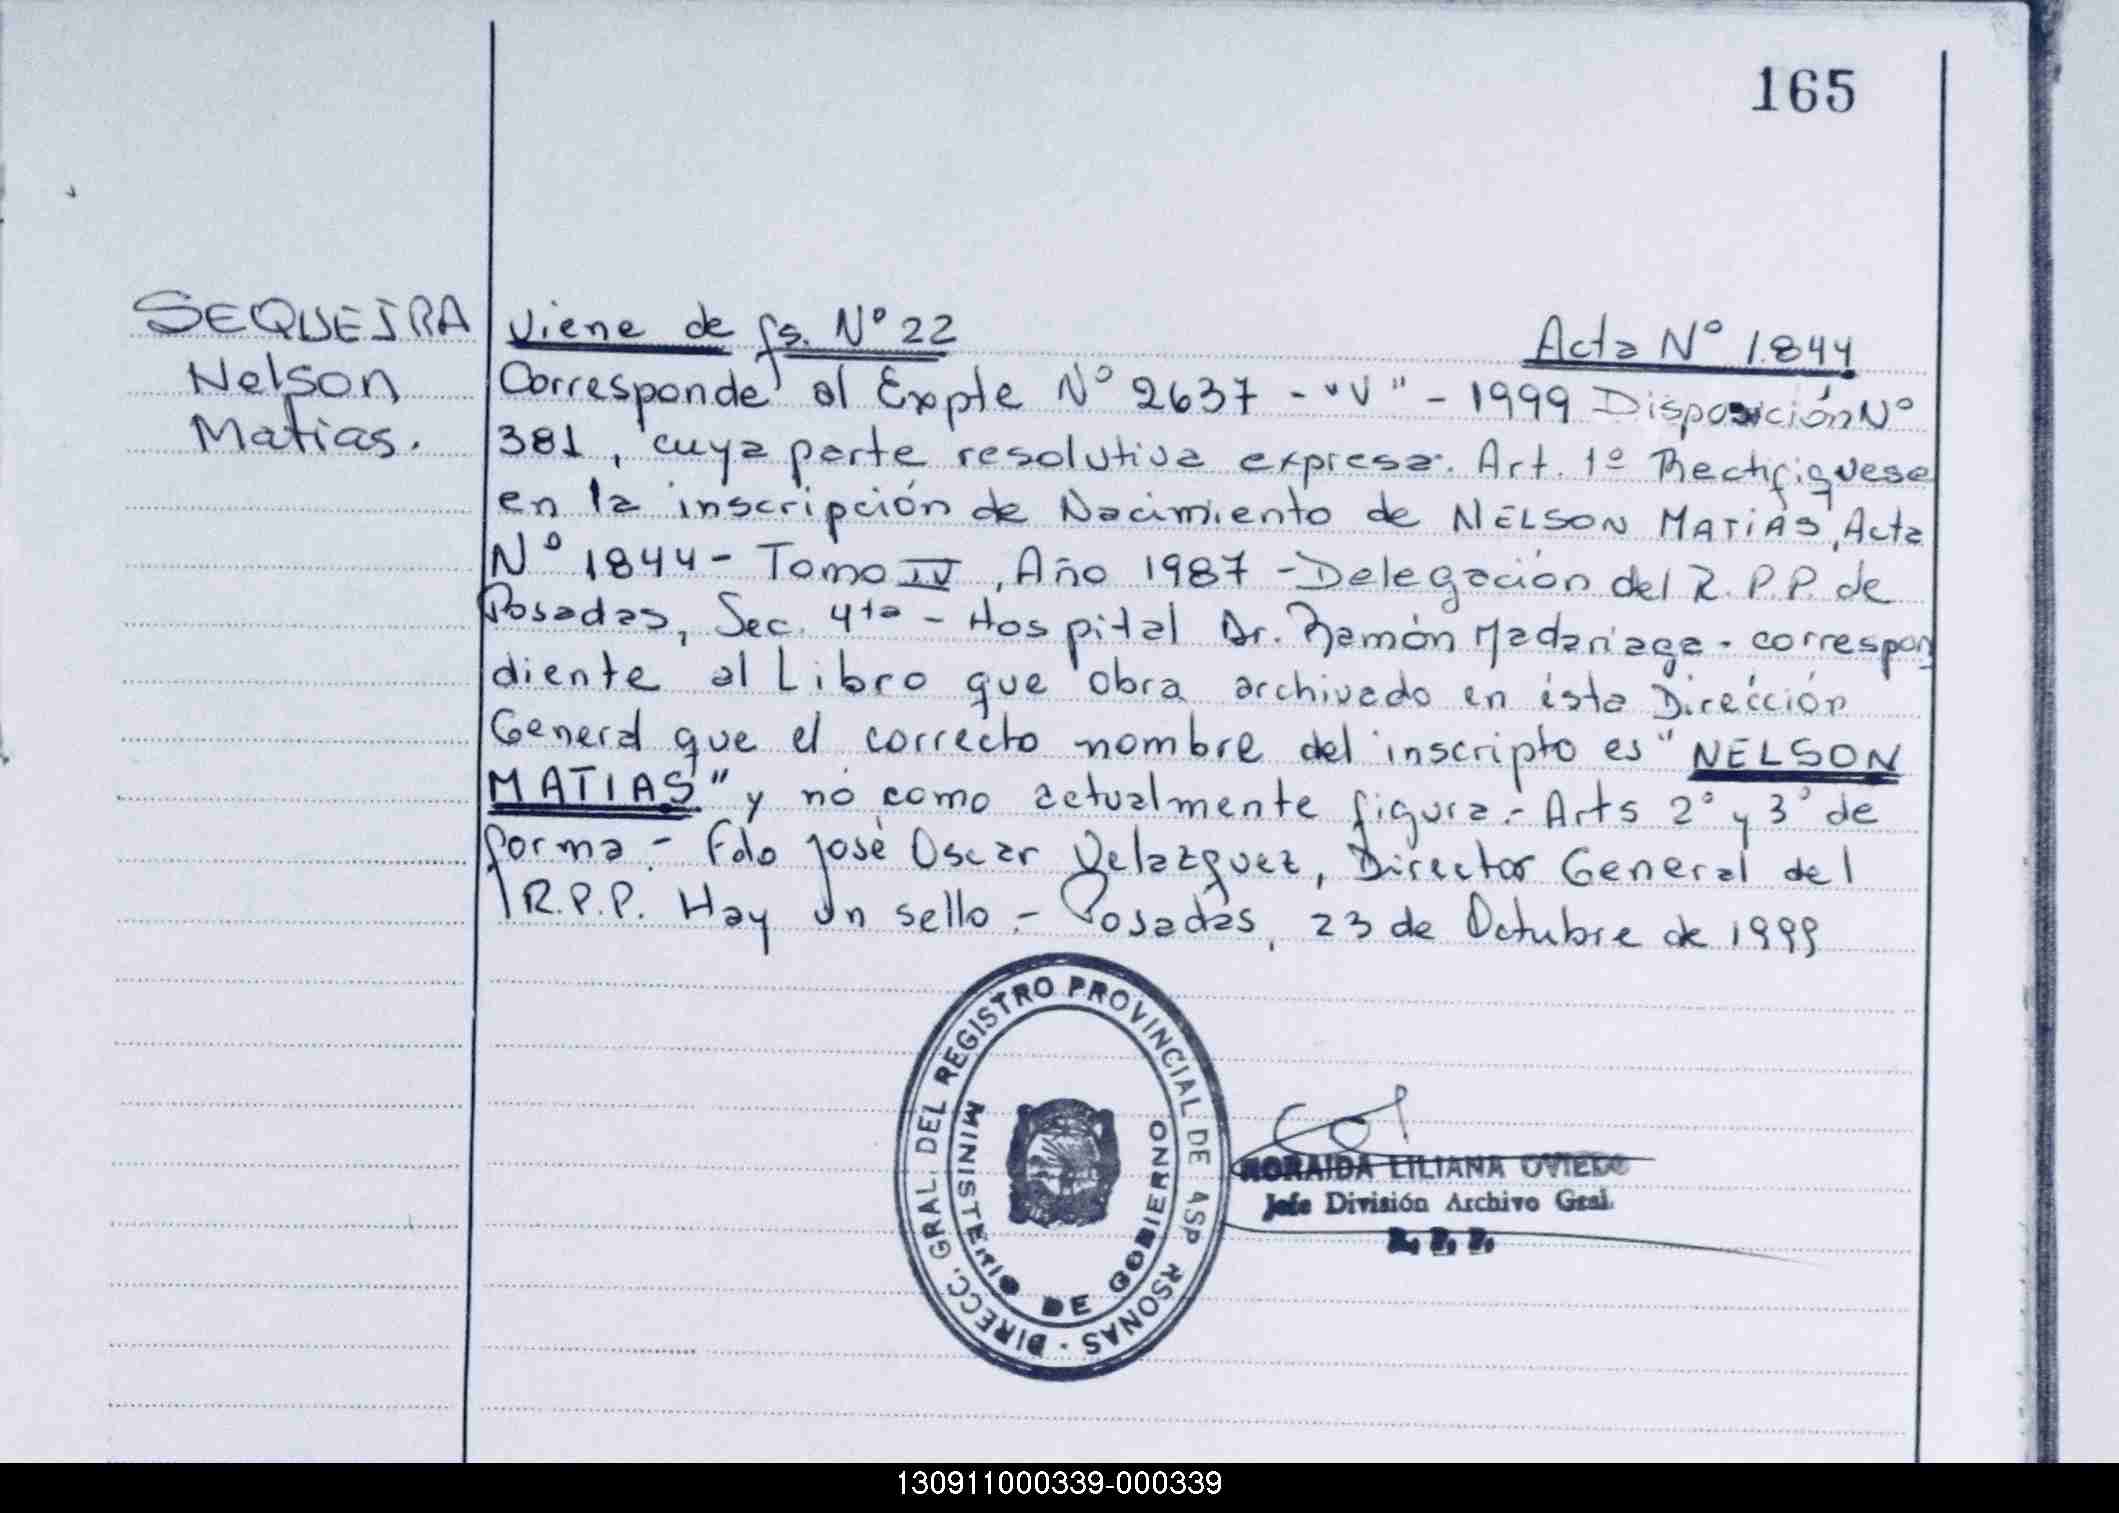 165
SEQUEIRA
Nelson
Matías.
Viene de fs. Nº 22
Acta Nº 1.844
Corresponde al Expte Nº 2637 - "V" - 1999 Disposición Nº
381, cuya parte resolutiva expresa. Art. 1º Rectifiquese
en la inscripción de Nacimiento de NELSON MATIAS, Acta
Nº 1844 - Tomo IV, Año 1987 - Delegación del R.P.P. de
Posadas, Sec. 4ta - Hospital Dr. Ramón Madariaga - correspon
diente al Libro que obra archivado en ésta Dirección
General que el correcto nombre del inscripto es "NELSON
MATIAS" y no como actualmente figura.- Arts 2º y 3º de
forma.- Fdo José Oscar Velazquez, Director General del
R.P.P. Hay un sello.- Posadas, 23 de Octubre de 1999
DIRECC. GRAL. DEL REGISTRO PROVINCIAL DE ASP RSONAS
MINISTERIO DE GOBIERNO
NORAIDA LILIANA OVIEDO
Jefe División Archivo Gral.
R. P. P.
130911000339-000339